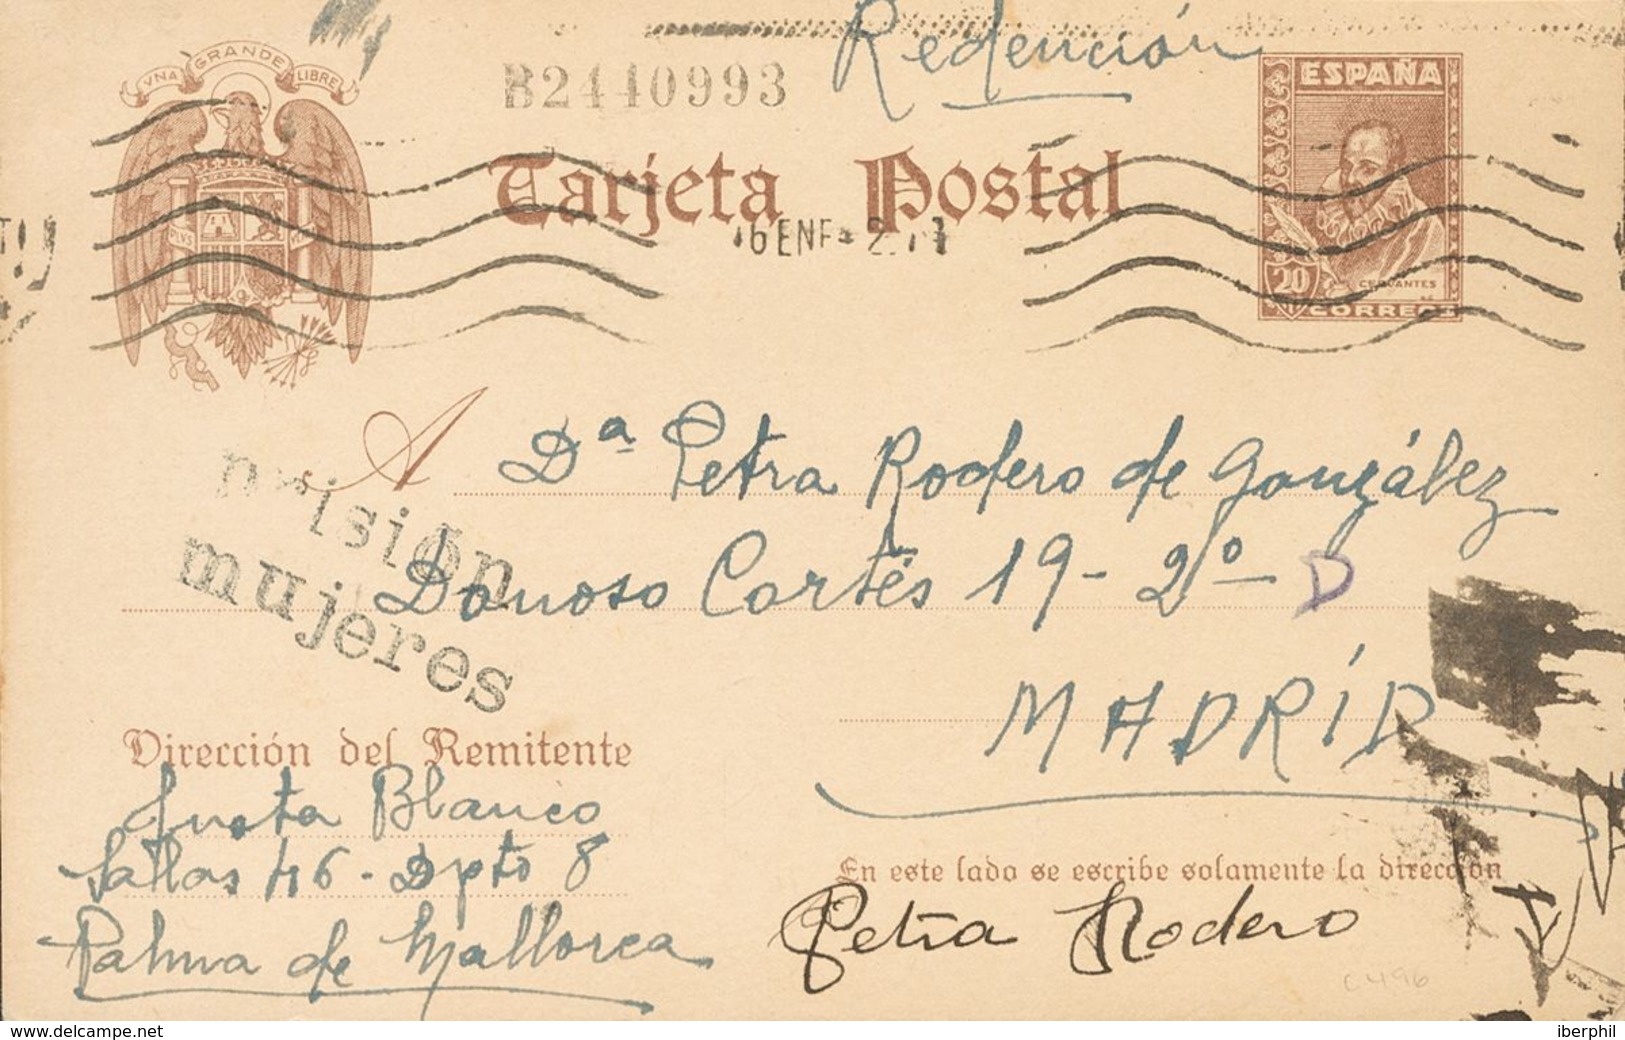 Redención
UNA GRANDE LIBRE
B2440993
ESPAÑA
Tarjeta Postal
6 ENE
20
CERVANTES
CORREOS
A Dª Petra Rodero de González
prisión
mujeres
Donoso Cortés 19 - 2º D
MADRÍD
Dirección del Remitente
Justa Blanco
Salas 46 - Dpto 8
Palma de Mallorca
En este lado se escribe solamente la dirección
Petra Rodero
C 496
www.delcampe.net
iberphil